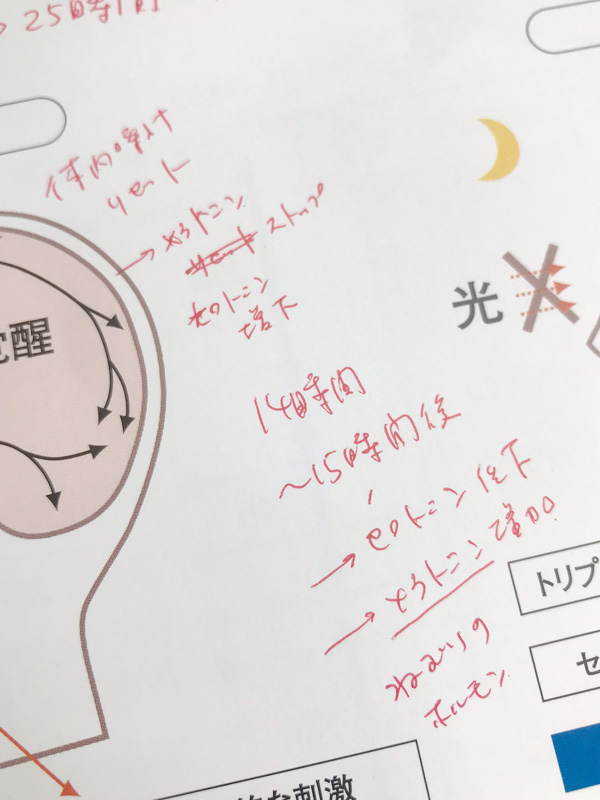 25時間
体内時計
リセット
→メラトニン
ストップ
セロトニン
覚醒
光
14時間
~15時間後
→セロトニン低下
→メラトニン増加。
ねむりの
ホルモン
トリプ
セ
な刺激